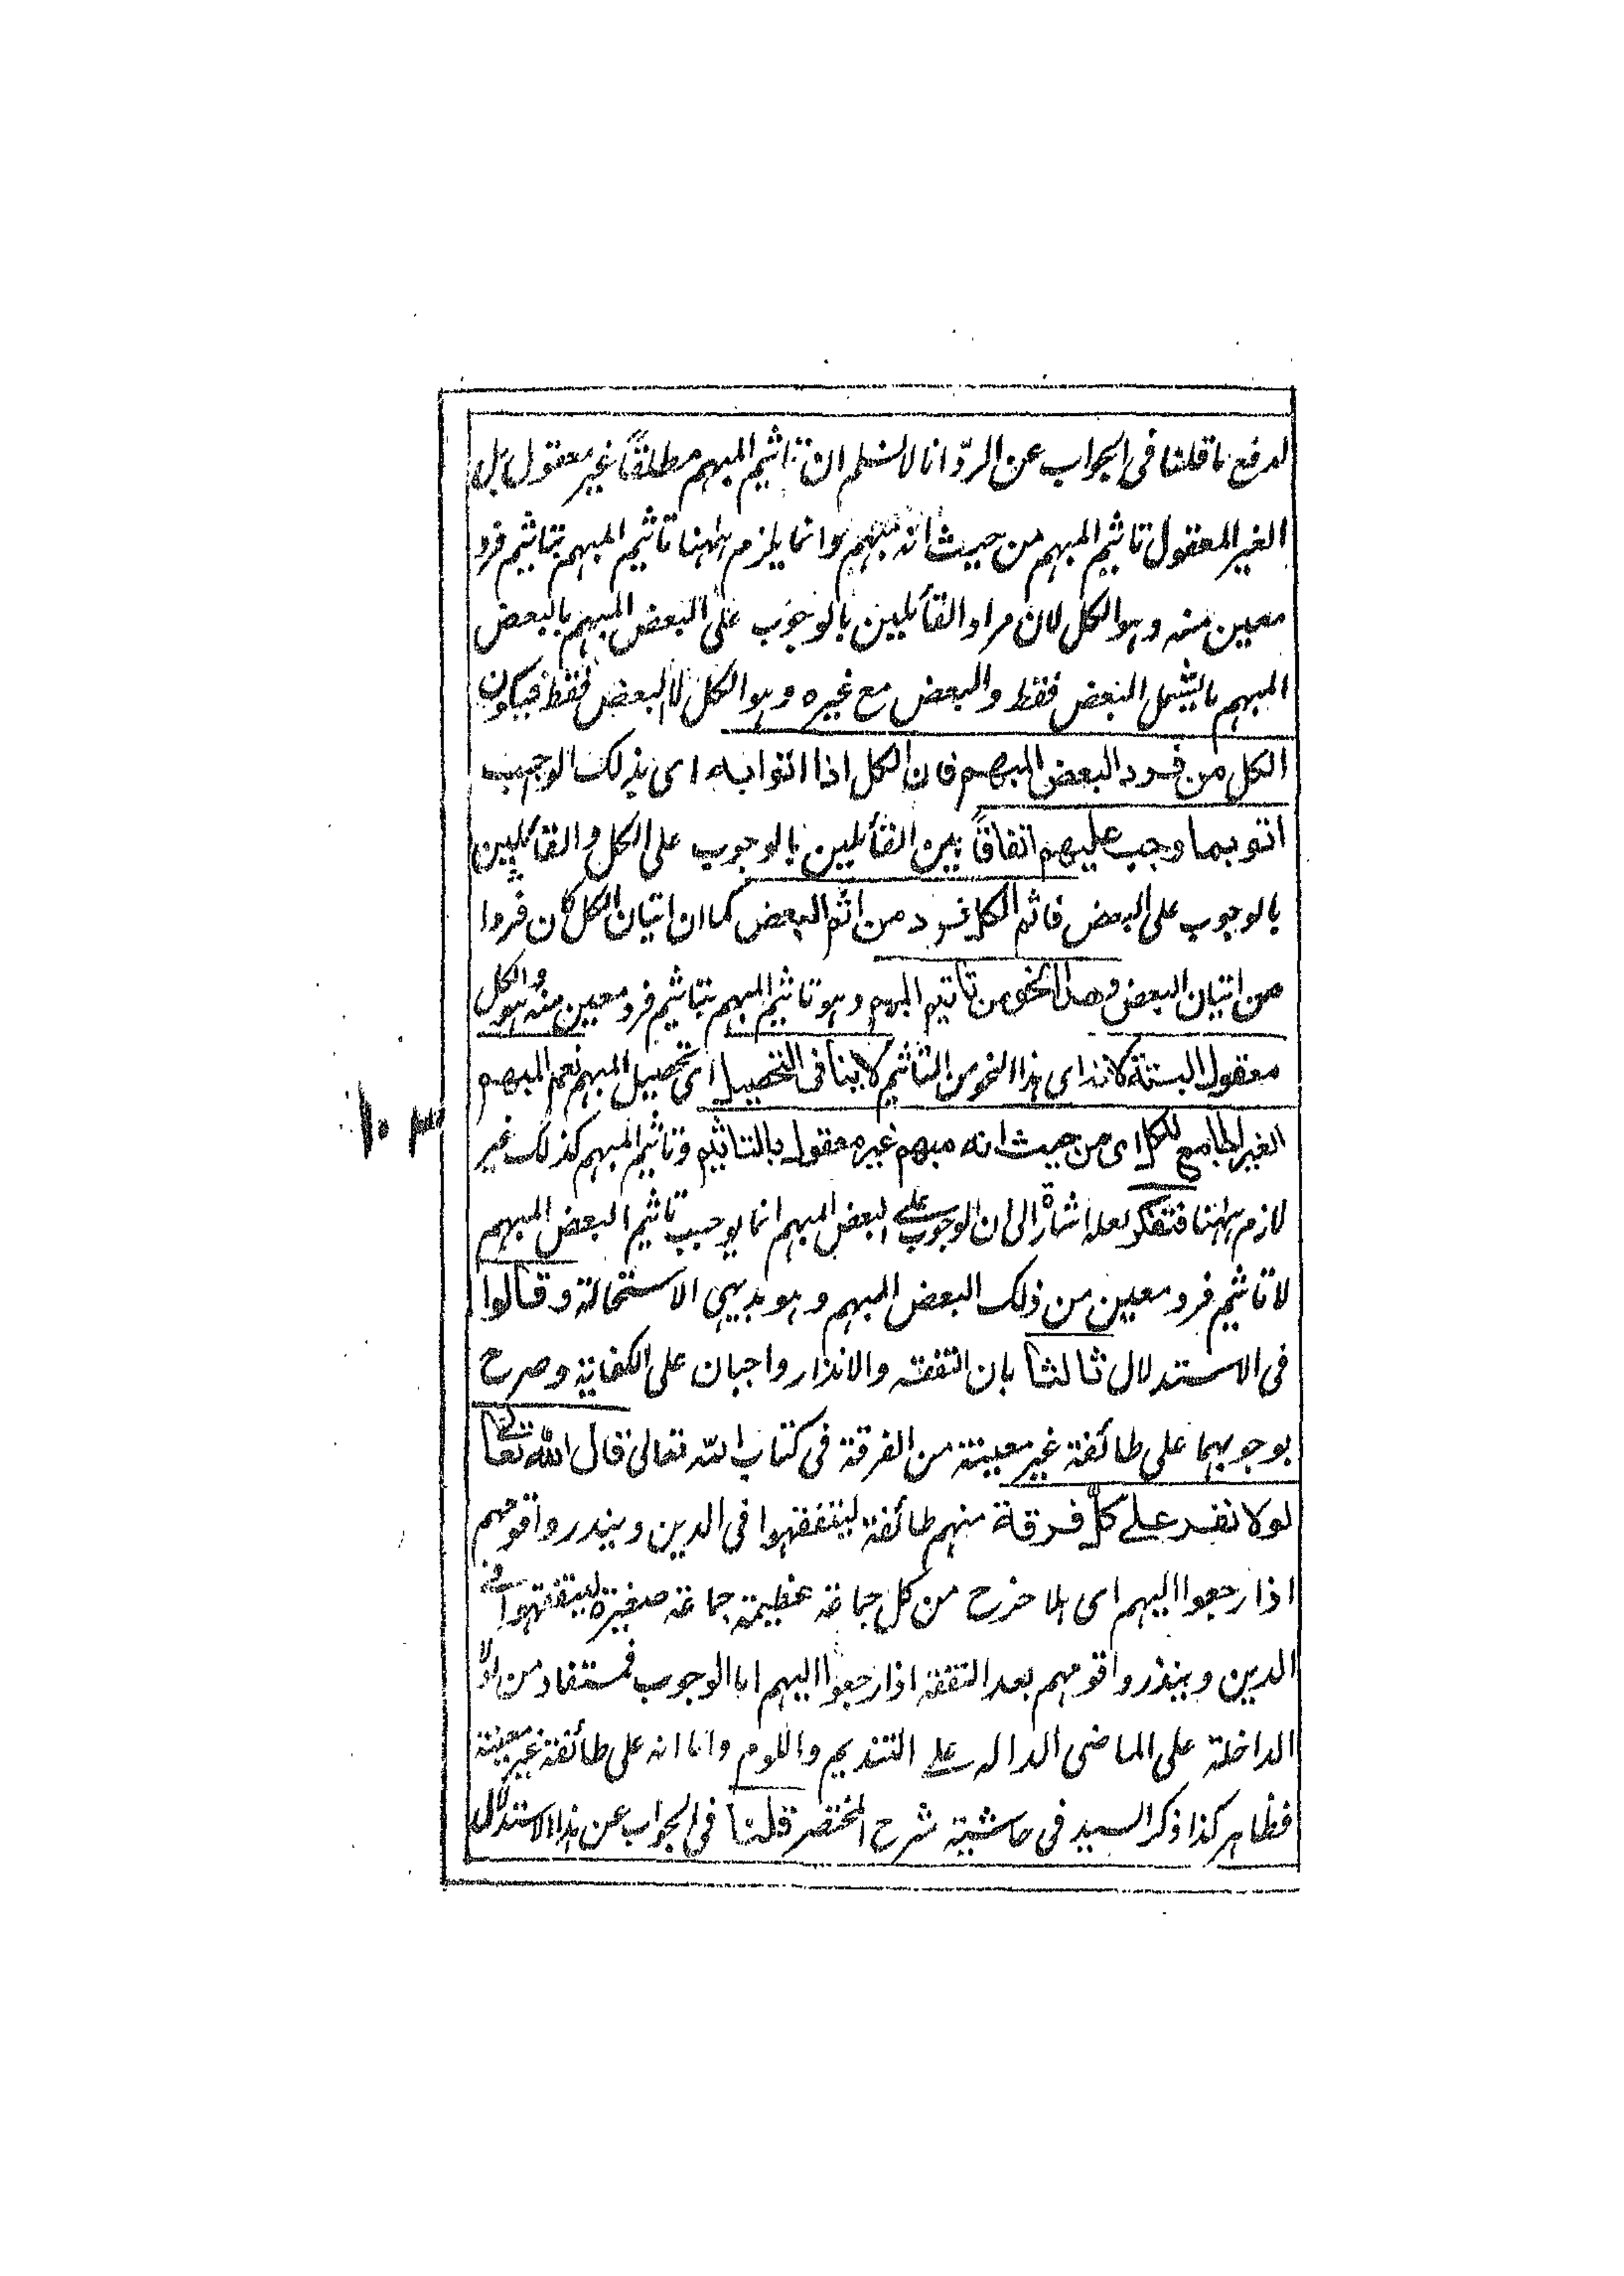 لدفع ما قلنا فى الجواب عن الردّ انا لا نسلم ان تاثيم المبهم مطلقاً غير معقول بل
الغير المعقول تاثيم المبهم من حيث انه مبهم وانما يلزم ههنا تاثيم المبهم بتاثيم فرد
معين منه وهو الكل لان مراد القائلين بالوجوب على البعض المبهم بالبعض
المبهم ما يشمل البعض فقط والبعض مع غيره وهو الكل لا البعض فقط فيكون
الكل من فرد البعض المبهم فان الكل اذا اتوا به اى بذلك الوجب
اتو بما وجب عليهم اتفاقاً بين القائلين بالوجوب على الكل والقائلين
بالوجوب على البعض فاثم الكل فرد من اثم البعض كما ان اتيان الكل كان فردا
من اتيان البعض وهذا النحو من تاثيم المبهم وهو تاثيم المبهم بتاثيم فرد معين منه وهو الكل
معقول البتة لانه اى هذا النحو من التاثيم لا ينافى التحصيل اى تحصيل المبهم نعم المبهم
الغير الجامع للكل اى من حيث انه مبهم غير معقول بالتاثيم وتاثيم المبهم كذلك غير
لازم ههنا فتفكر لعله اشارة الى ان الوجوب على البعض المبهم انما يوجب تاثيم البعض المبهم
لا تاثيم فرد معين من ذلك البعض المبهم وهو بديهى الاستحالة وقالوا
فى الاستدلال ثالثا بان التفقه والانذار واجبان على الكفاية وصرح
بوجوبهما على طائفة غير معينة من الفرقة فى كتاب الله تعالى قال الله تعالى
لولا نفر على كل فرقة منهم طائفة ليتفقهوا فى الدين وينذروا قومهم
اذا رجعوا اليهم اى هلا خرج من كل جماعة عظيمة جماعة صغيرة ليتفقهوا فى
الدين وينذروا قومهم بعد التفقه اذا رجعوا اليهم اما الوجوب فمستفاد من لولا
الداخلة على الماضى الداله على التنديم واللوم واما انه على طائفة غير معينة
فظاهر كذا ذكر السيد فى حاشية شرح المختصر قلنا فى الجواب عن هذا الاستدلال
١٠٣